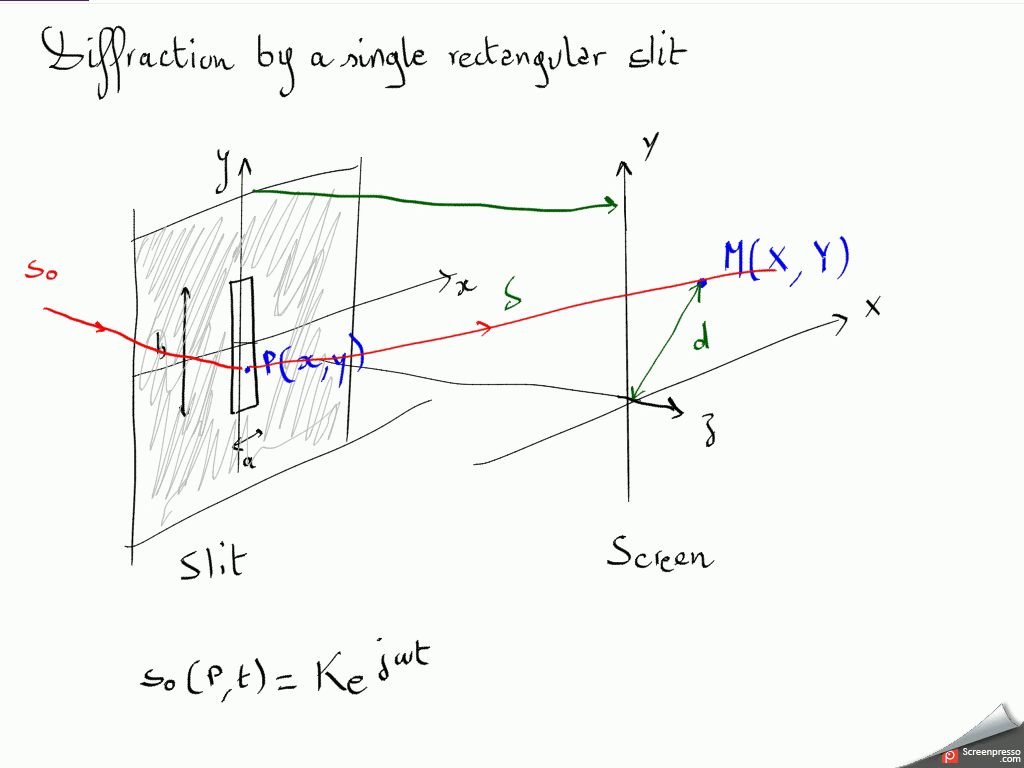 Diffraction by a single rectangular slit
y
Y
s₀
x
S
M(X, Y)
X
b
P(x, y)
d
z
a
Slit
Screen
s₀(P, t) = K e^{jωt}
Screenpresso
.com